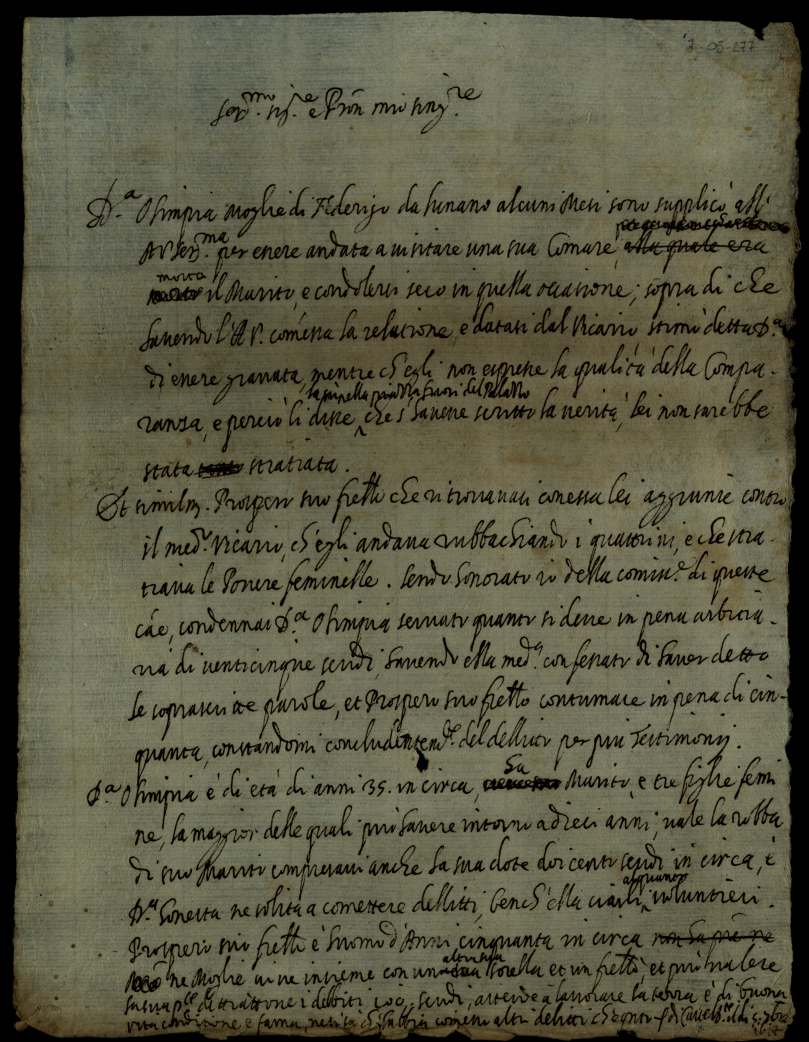 7-05-177
Ser.mo Sig.re e Pron mio sing.re
D.a Olimpia Moglie di Federigo da lunano alcuni Mesi sono supplicò all'
A.V. Ser.ma per essere andata a visitare una sua Comare alla quale era
morto il Marito, e condolersi seco in quella occasione; sopra di che
havendo l'A.V. comessa la relatione, e datasi dal Vicario stimò detta D.a
di essere gravata, mentre ch'egli non espresse la qualità della Compa-
ranza, e perciò li disse, che s'havesse scritto la verità, lei non sarebbe
fuori del Palazzo
stata stratiata.
Et simil.te Prospero suo fretello che ritrovavasi con essa lei aggiunse contro
il med.o Vicario, ch'egli andava rubbachiando i quattrini, e che stra-
tiava le Povere feminelle. Sendo honorato io della comiss.e di queste
cãe, condennai D.a Olimpia servato quanto si deve in pena arbitra-
ria di venticinque scudi, havendo ella med.a confessato di haver detto
le soprascritte parole, et Prospero suo frello contumace in pena di cin-
quanta, constandomi concludentem.te del delitto per più Testimonij.
D.a Olimpia è di età di anni 35. in circa, ha Marito, e tre figlie femi
ne, la maggior delle quali può havere intorno a dieci anni; vale la robba
di suo Marito compresavi anche la sua dote doicento scudi in circa, è
D.a honesta ne solita a comettere delitti, bench'ella ciarli alquanto voluntieri.
Prospero suo frello è huomo d'Anni cinquanta in circa non ha pre ne
ne Moglie vive insieme con un'altra sua sorella et un frello, et può valere
la sua p.te detrattone i debiti 100 scudi, attende a lavorare la terra è di buona
vita conditione e fama, ne si sa ch'habbia comessi altri delitti